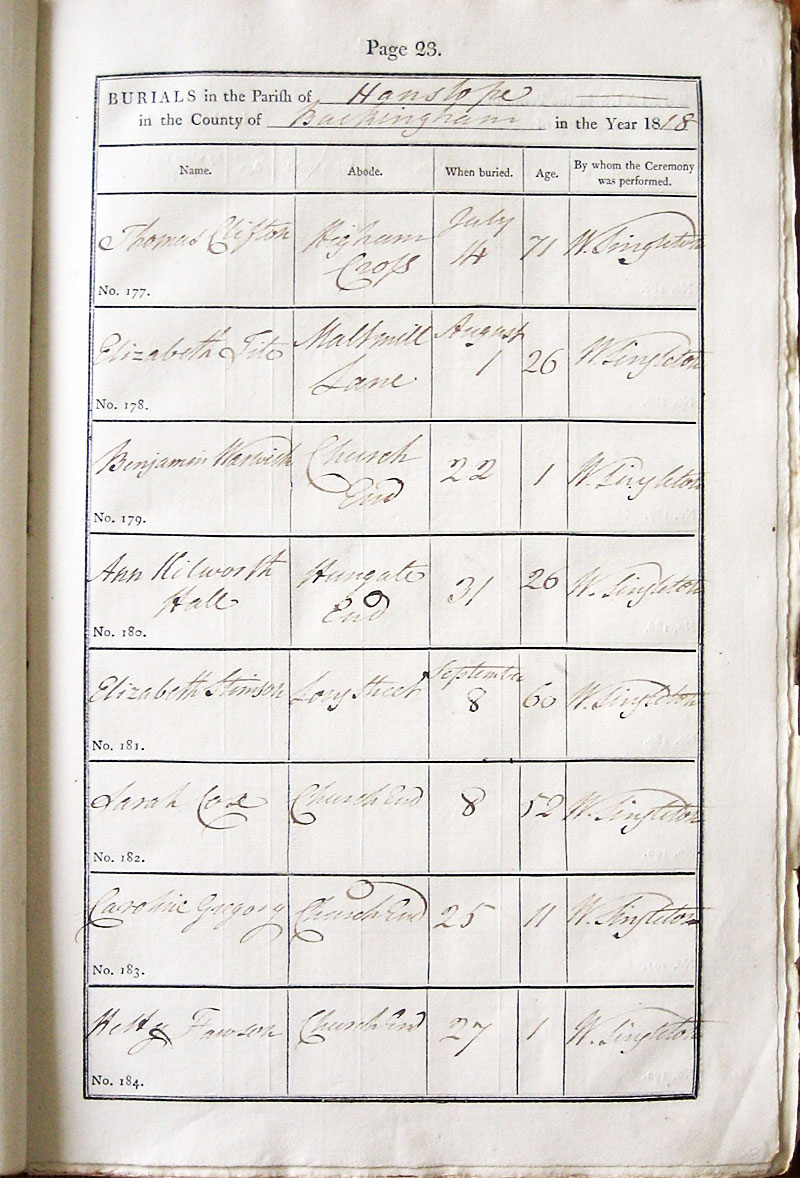 Page 23.
BURIALS in the Pariſh of Hanslope
in the County of Buckingham in the Year 1818
Name. Abode. When buried. Age. By whom the Ceremony was performed.
Thomas Clifton Higham Croſs July 14 71 W. Singleton
No. 177.
Elizabeth Tite Maltmill Lane August 1 26 W. Singleton
No. 178.
Benjamin Warwick Church End 22 1 W. Singleton
No. 179.
Ann Kilworth Hall Hungate End 31 26 W. Singleton
No. 180.
Elizabeth Stimson Long Street September 8 60 W. Singleton
No. 181.
Sarah Cox Church End 8 52 W. Singleton
No. 182.
Caroline Gregory Church End 25 11 W. Singleton
No. 183.
Church End 27 1 W. Singleton
No. 184.